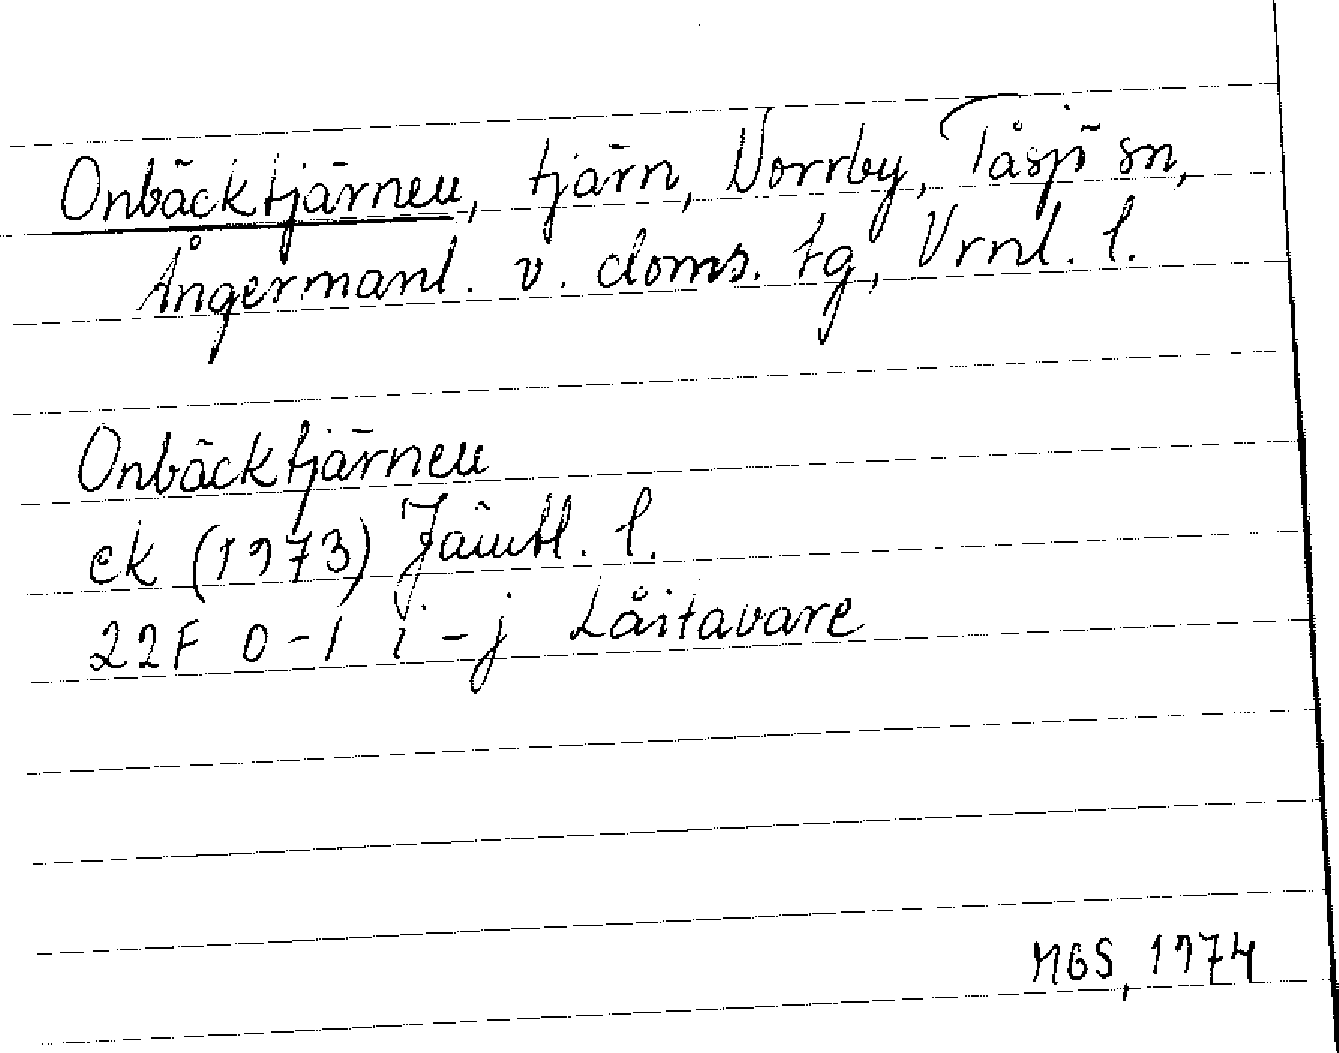 Onbäcktjärnen, tjärn, Norrby, Tåsjö sn,
Ångermanl. v. doms. tg, Vrnl. l.
Onbäcktjärnen
ek (1973) Jämtl. l.
22F 0-1 i-j Låitavare
MGS, 1974